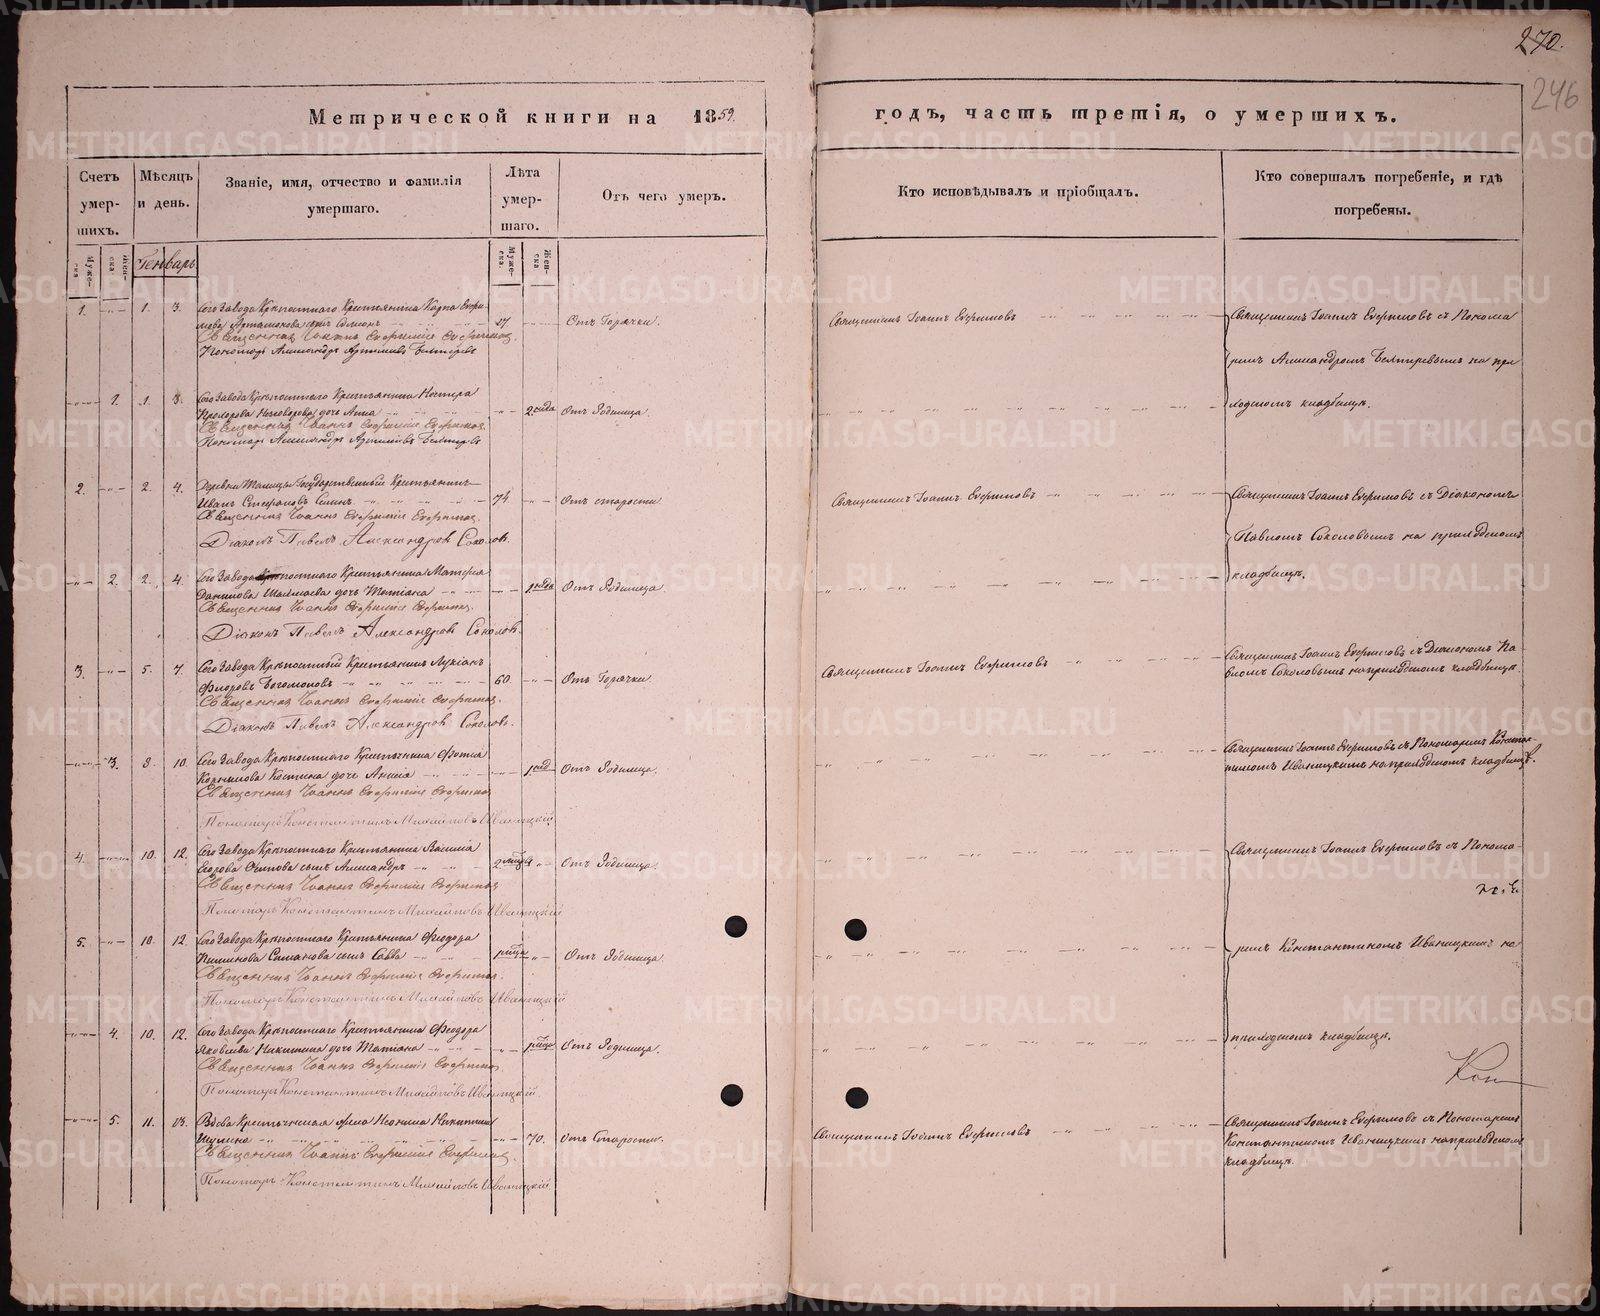 270.
246
Метрической книги на 1859.
годъ, часть третія, о умершихъ.
Счетъ умер-шихъ.
Мѣсяцъ и день.
Званіе, имя, отчество и фамилія умершаго.
Лѣта умер-шаго.
Отъ чего умеръ.
Кто исповѣдывалъ и пріобщалъ.
Кто совершалъ погребеніе, и гдѣ погребены.
Муже-ска.
Жен-ска.
Генварь
Муже-ска.
Жен-ска
1. 1. 3. Сего Завода Крѣпостнаго Крестьянина Карпа
Артамонова сынъ 27. Отъ Горячки. Священникъ Іоаннъ Евфимовъ
Священникъ Іоаннъ Евфиміевъ Евфимовъ
Пономарь Александръ
Священникъ Іоаннъ Евфимовъ съ Понома
ремъ Александромъ на при
ходскомъ кладбищѣ.
1. 1. 3. Сего Завода Крѣпостнаго Крестьянина
дочь Анна 2 года Отъ Родимца.
Священникъ Іоаннъ Евфиміевъ Евфимовъ
Пономарь Александръ
2. 2. 4. Деревни Государственный Крестьянинъ
Иванъ Стефановъ 74 Отъ старости Священникъ Іоаннъ Евфимовъ
Священникъ Іоаннъ Евфиміевъ Евфимовъ.
Діаконъ Павелъ Александровъ Соколовъ.
Священникъ Іоаннъ Евфимовъ съ Діакономъ
Павломъ Соколовымъ на приходскомъ
кладбищѣ.
2. 2. 4. Сего Завода Крѣпостнаго Крестьянина
Данилова дочь Татіана 1 года Отъ Родимца.
Священникъ Іоаннъ Евфиміевъ Евфимовъ.
Діаконъ Павелъ Александровъ Соколовъ.
3. 5. 7. Сего Завода Крѣпостный Крестьянинъ Лукіанъ
Флоровъ Богомоловъ 60. Отъ Горячки. Священникъ Іоаннъ Евфимовъ
Священникъ Іоаннъ Евфиміевъ Евфимовъ.
Діаконъ Павелъ Александровъ Соколовъ.
Священникъ Іоаннъ Евфимовъ съ Діакономъ Па-
вломъ Соколовымъ на приходскомъ кладбищѣ.
3. 8. 10. Сего Завода Крѣпостнаго Крестьянина Фотія
Корнилова Костина дочь 1 год Отъ Родимца.
Священникъ Іоаннъ Евфиміевъ Евфимовъ
Пономарь Константинъ Михайловъ Иваницкій.
Священникъ Іоаннъ Евфимовъ съ Пономаремъ Констан-
тиномъ Иваницкимъ на приходскомъ кладбищѣ.
4. 10. 12. Сего Завода Крѣпостнаго Крестьянина Василія
Егорова Осипова сынъ Александръ Отъ Родимца.
Священникъ Іоаннъ Евфиміевъ Евфимовъ
Пономарь Константинъ Михайловъ Иваницкій
Священникъ Іоаннъ Евфимовъ съ Понома-
5. 10. 12. Сего Завода Крѣпостнаго Крестьянина Феодора
сынъ Савва Отъ Родимца.
Священникъ Іоаннъ Евфиміевъ Евфимовъ.
Пономарь Константинъ Михайловъ Иваницкій
ремъ Константиномъ Иваницкимъ на
4. 10. 12. Сего Завода Крѣпостнаго Крестьянина Феодора
Яковлева Никитина дочь Татіана Отъ Родимца.
Священникъ Іоаннъ Евфиміевъ Евфимовъ.
Пономарь Константинъ Михайловъ Иваницкій.
приходскомъ кладбищѣ.
5. 11. 13. Вдова Крестьянская жена Никитина
70. Отъ Старости. Священникъ Іоаннъ Евфимовъ
Священникъ Іоаннъ Евфиміевъ Евфимовъ.
Пономарь Константинъ Михайловъ Иваницкій.
Священникъ Іоаннъ Евфимовъ съ Пономаремъ
Константиномъ Иваницкимъ на приходскомъ
кладбищѣ.
METRIKI.GASO-URAL.RU